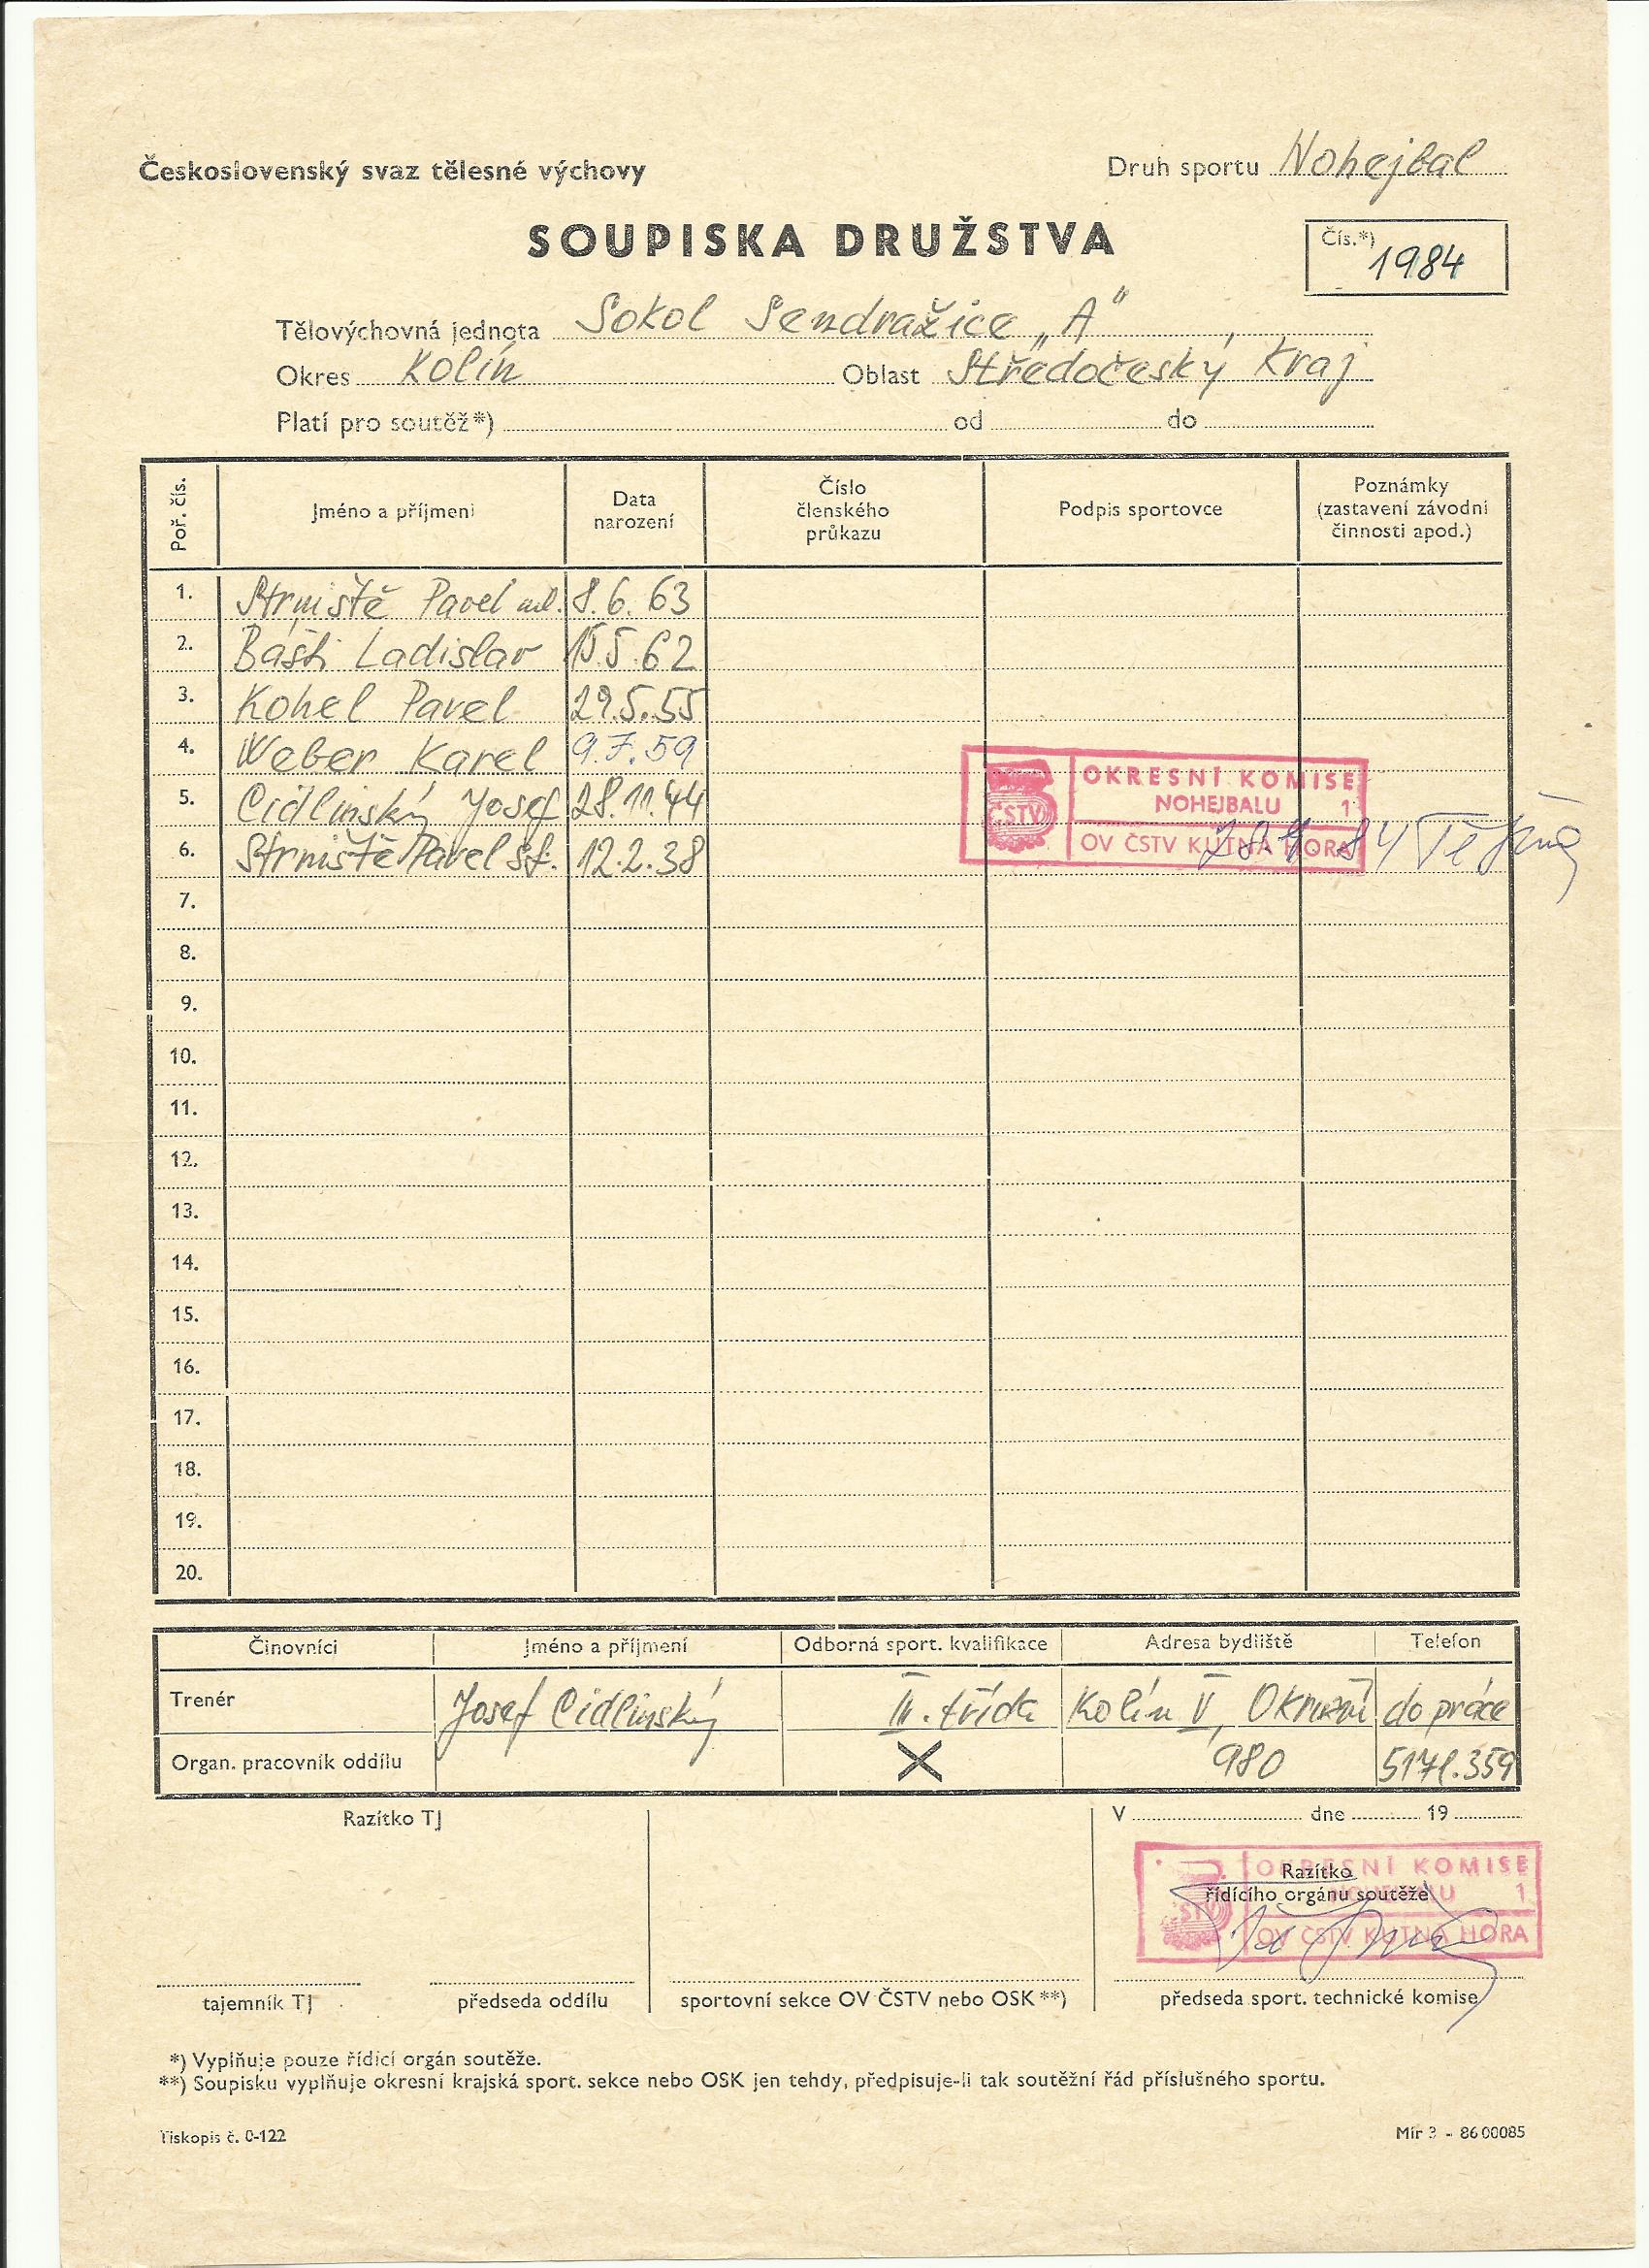 Československý svaz tělesné výchovy
Druh sportu Nohejbal
SOUPISKA DRUŽSTVA
Čís.*) 1984
Tělovýchovná jednota Sokol Sendražice „A"
Okres Kolín Oblast Středočeský Kraj
Platí pro soutěž*) od do
Poř. čís. Jméno a příjmení Data narození Číslo členského průkazu Podpis sportovce Poznámky (zastavení závodní činnosti apod.)
1. Strniště Pavel ml. 8.6.63
2. Bašti Ladislav 15.5.62
3. Kohel Pavel 29.5.55
4. Weber Karel 9.7.59
5. Cidlinský Josef 28.11.44
6. Strniště Pavel st. 12.2.38
OKRESNÍ KOMISE
NOHEJBALU 1
ČSTV
OV ČSTV KUTNÁ HORA
7.
8.
9.
10.
11.
12.
13.
14.
15.
16.
17.
18.
19.
20.
Činovníci Jméno a příjmení Odborná sport. kvalifikace Adresa bydliště Telefon
Trenér Josef Cidlinský II. třída Kolín V, Okružní do práce
Organ. pracovník oddílu X 980 5171.359
Razítko TJ
V dne 19
OKRESNÍ KOMISE
NOHEJBALU 1
ČSTV
OV ČSTV KUTNÁ HORA
Razítko
řídícího orgánu soutěže
tajemník TJ předseda oddílu sportovní sekce OV ČSTV nebo OSK **) předseda sport. technické komise
*) Vyplňuje pouze řídící orgán soutěže.
**) Soupisku vyplňuje okresní krajská sport. sekce nebo OSK jen tehdy, předpisuje-li tak soutěžní řád příslušného sportu.
Tiskopis č. 0-122
Mír 3 - 8600085